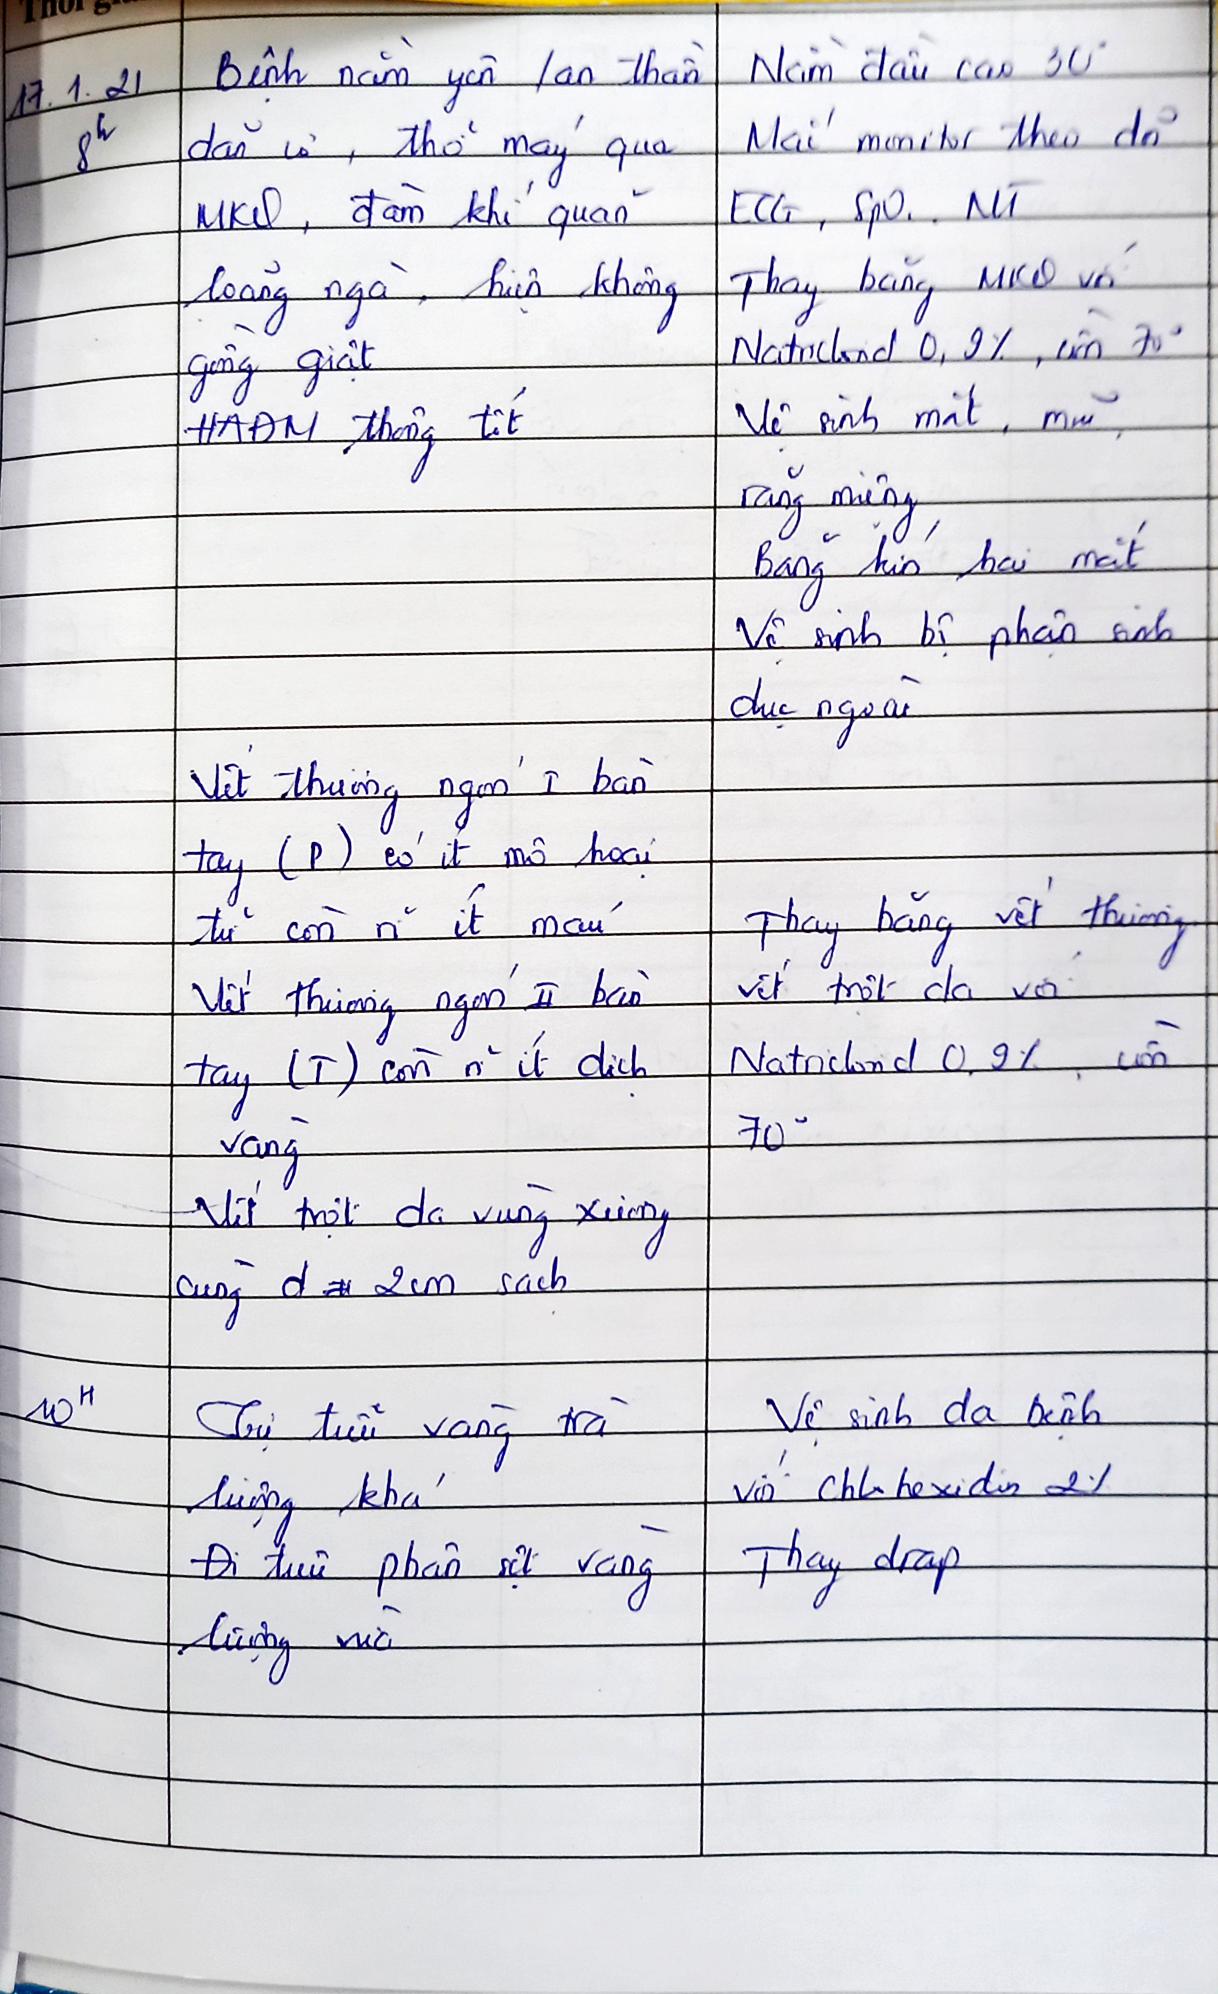 Thời
17.1.21
8h
Bệnh nằm yên / an thần
dãn cơ, thở máy qua
MKQ, đàm khí quản
loãng ngà, hiện không
gồng giật
HAĐM thông tốt
Nằm đầu cao 30°
Mắc monitor theo dõi
ECG, SpO₂, NT
Thay băng MKQ với
Natriclorid 0,9%, cồn 70°
Vệ sinh mắt, mũi,
răng miệng
Băng kín hai mắt
Vệ sinh bộ phận sinh
dục ngoài
Vết thương ngón I bàn
tay (P) có ít mô hoại
tử còn rỉ ít máu
Vết thương ngón II bàn
tay (T) còn rỉ ít dịch
vàng
Vết trợt da vùng xương
cùng d ≈ 2cm sạch
Thay băng vết thương
vết trợt da với
Natriclorid 0,9%, cồn
70°
10H
tiểu vàng trà
lượng khá
Đi tiêu phân sệt vàng
lượng vừa
Vệ sinh da bệnh
với Chlohexidin 2%
Thay drap